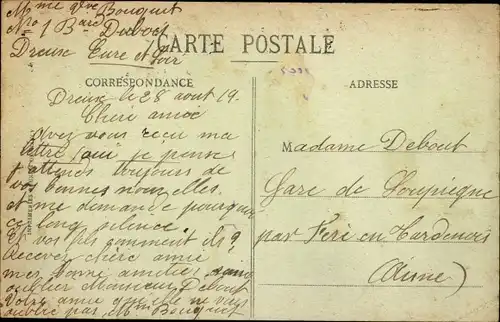 Mme Vve Bouquet
No 1 Bard Dubois
Dreux Eure et Loir
CARTE POSTALE
CORRESPONDANCE
ADRESSE
Dreux le 28 aout 19.
Chère amie
avez vous reçu ma
lettre oui je pense
j attends toujours de
vos bonnes nouvelles.
et me demande pourquoi
ce long silence.
Et vos fils comment ils?
Recever chère amie
mes bonne amitiés, sans
oublier Monsieur Debout
Votre amie qui elle ne vous
oublie pas, Mme Bouquet
Madame Debout
Gare de
par Fère en Tardenois
(Aisne)